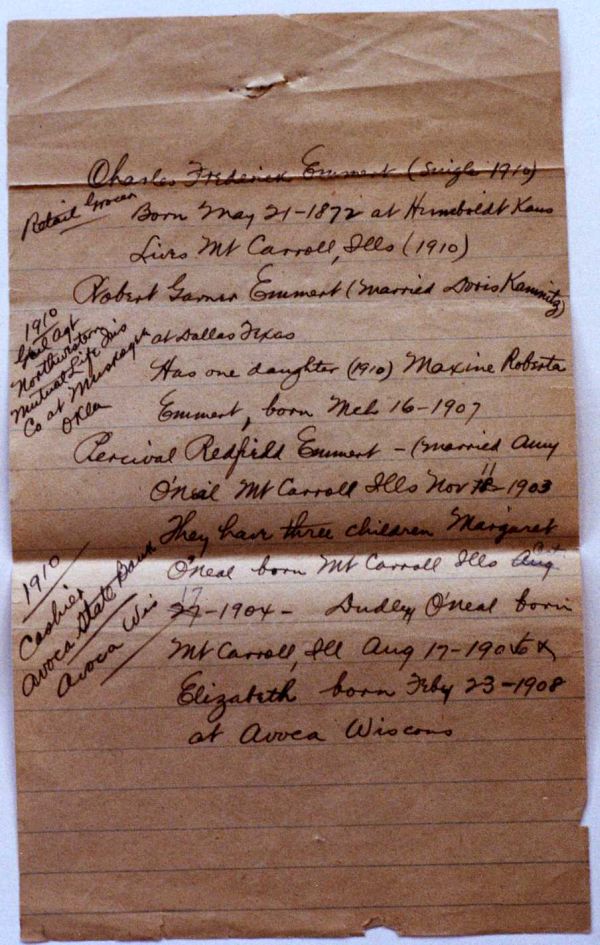 Charles Frederick Emmert (Single 1910)
Retail Grocer
Born May 21-1872 at Humboldt Kans
Lives Mt Carroll, Ills (1910)
Robert Garner Emmert (Married Doris Kamnitz)
at Dallas Texas
1910
Genl Agt
Northwestern
Mutual Life Ins
Co at Muskogee
Okla
Has one daughter (1910) Maxine Roberta
Emmert, born Mch 16-1907
Percival Redfield Emmert - (Married Amy
O'Neal Mt Carroll Ills Nov 11-1903
They have three children Margaret
O'Neal born Mt Carroll Ills
1910
Cashier
Avoca State Bank
Avoca Wis
-1904- Dudley O'Neal born
Mt Carroll, Ill Aug 17-190
Elizabeth born Feby 23-1908
at Avoca Wiscons